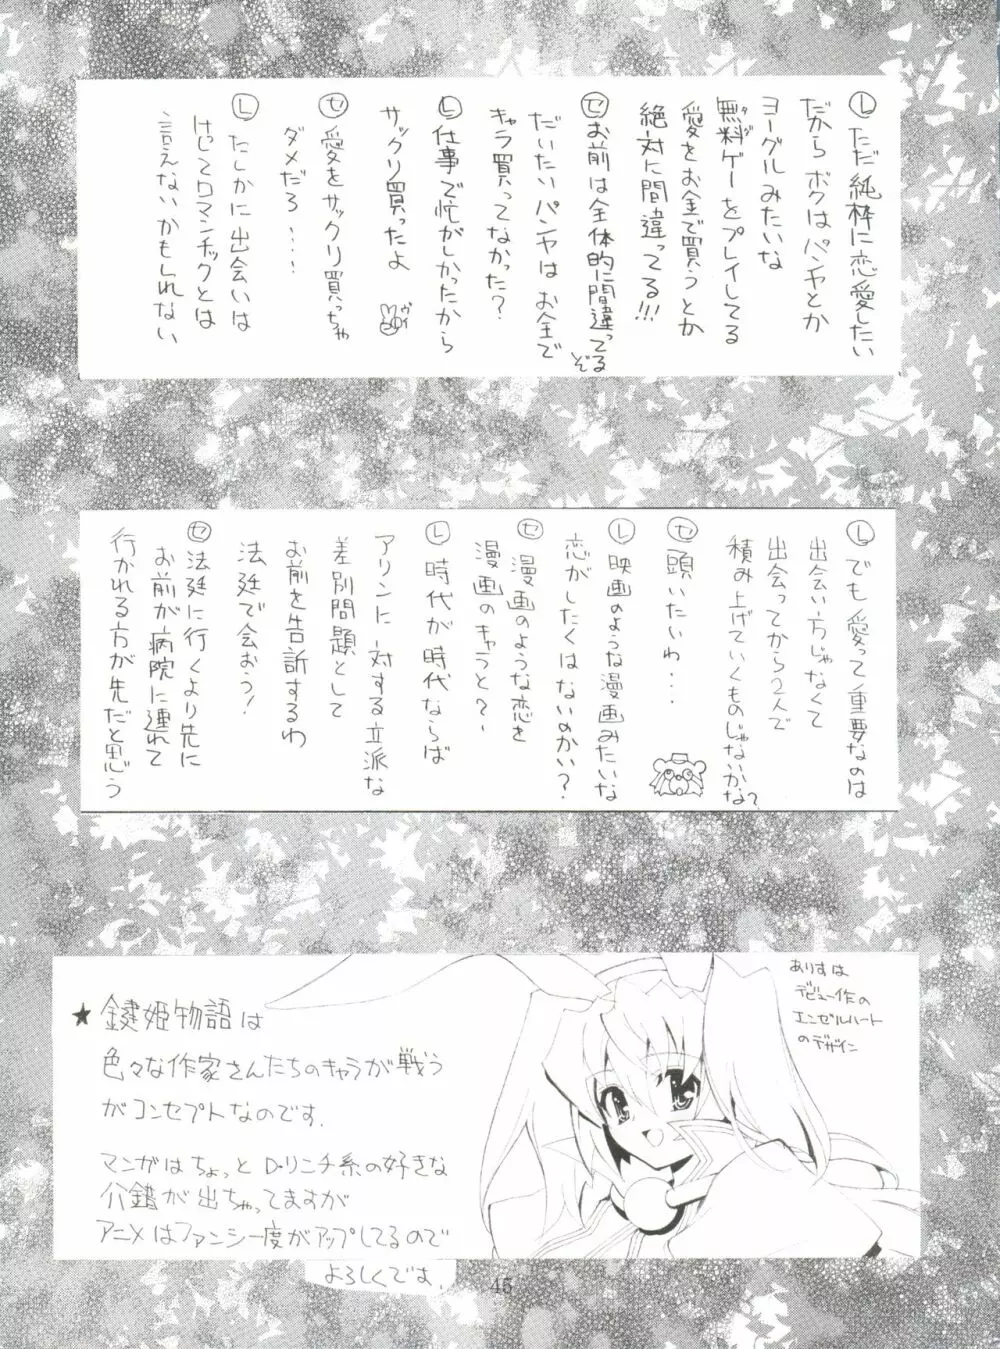 Ⓛただ純粋に恋愛したい
だからボクはパンヤとか
ヨーグルみたいな
無料ゲーをプレイしてる
タダ
愛をお金で買うとか
絶対に間違ってる!!!
㋝お前は全体的に間違ってるぞ
だいたいパンヤはお金で
キャラ買ってなかった?
Ⓛ仕事で忙がしかったから
サックリ買ったよ
ヴイ
㋝愛をサックリ買っちゃ
ダメだろ・・・・
Ⓛたしかに出会いは
けしてロマンチックとは
言えないかもしれない
Ⓛでも愛って重要なのは
出会い方じゃなくて
出会ってから2人で
積み上げていくものじゃないかな?
㋝頭いたいわ・・・
Ⓛ映画のような漫画みたいな
恋がしたくはないのかい?
㋝漫画のような恋を
漫画のキャラと?〜
Ⓛ時代が時代ならば
アリンに対する立派な
差別問題として
お前を告訴するわ
法廷で会おう!
㋝法廷に行くより先に
お前が病院に連れて
行かれる方が先だと思う
★鍵姫物語は
色々な作家さんたちのキャラが戦う
がコンセプトなのです.
マンガはちょっとロ・リニチ系の好きな
介錯が出ちゃってますが
アニメはファンシー度がアップしてるので
よろしくです.
ありすは
デビュー作の
エンゼルハート
のデザイン
45